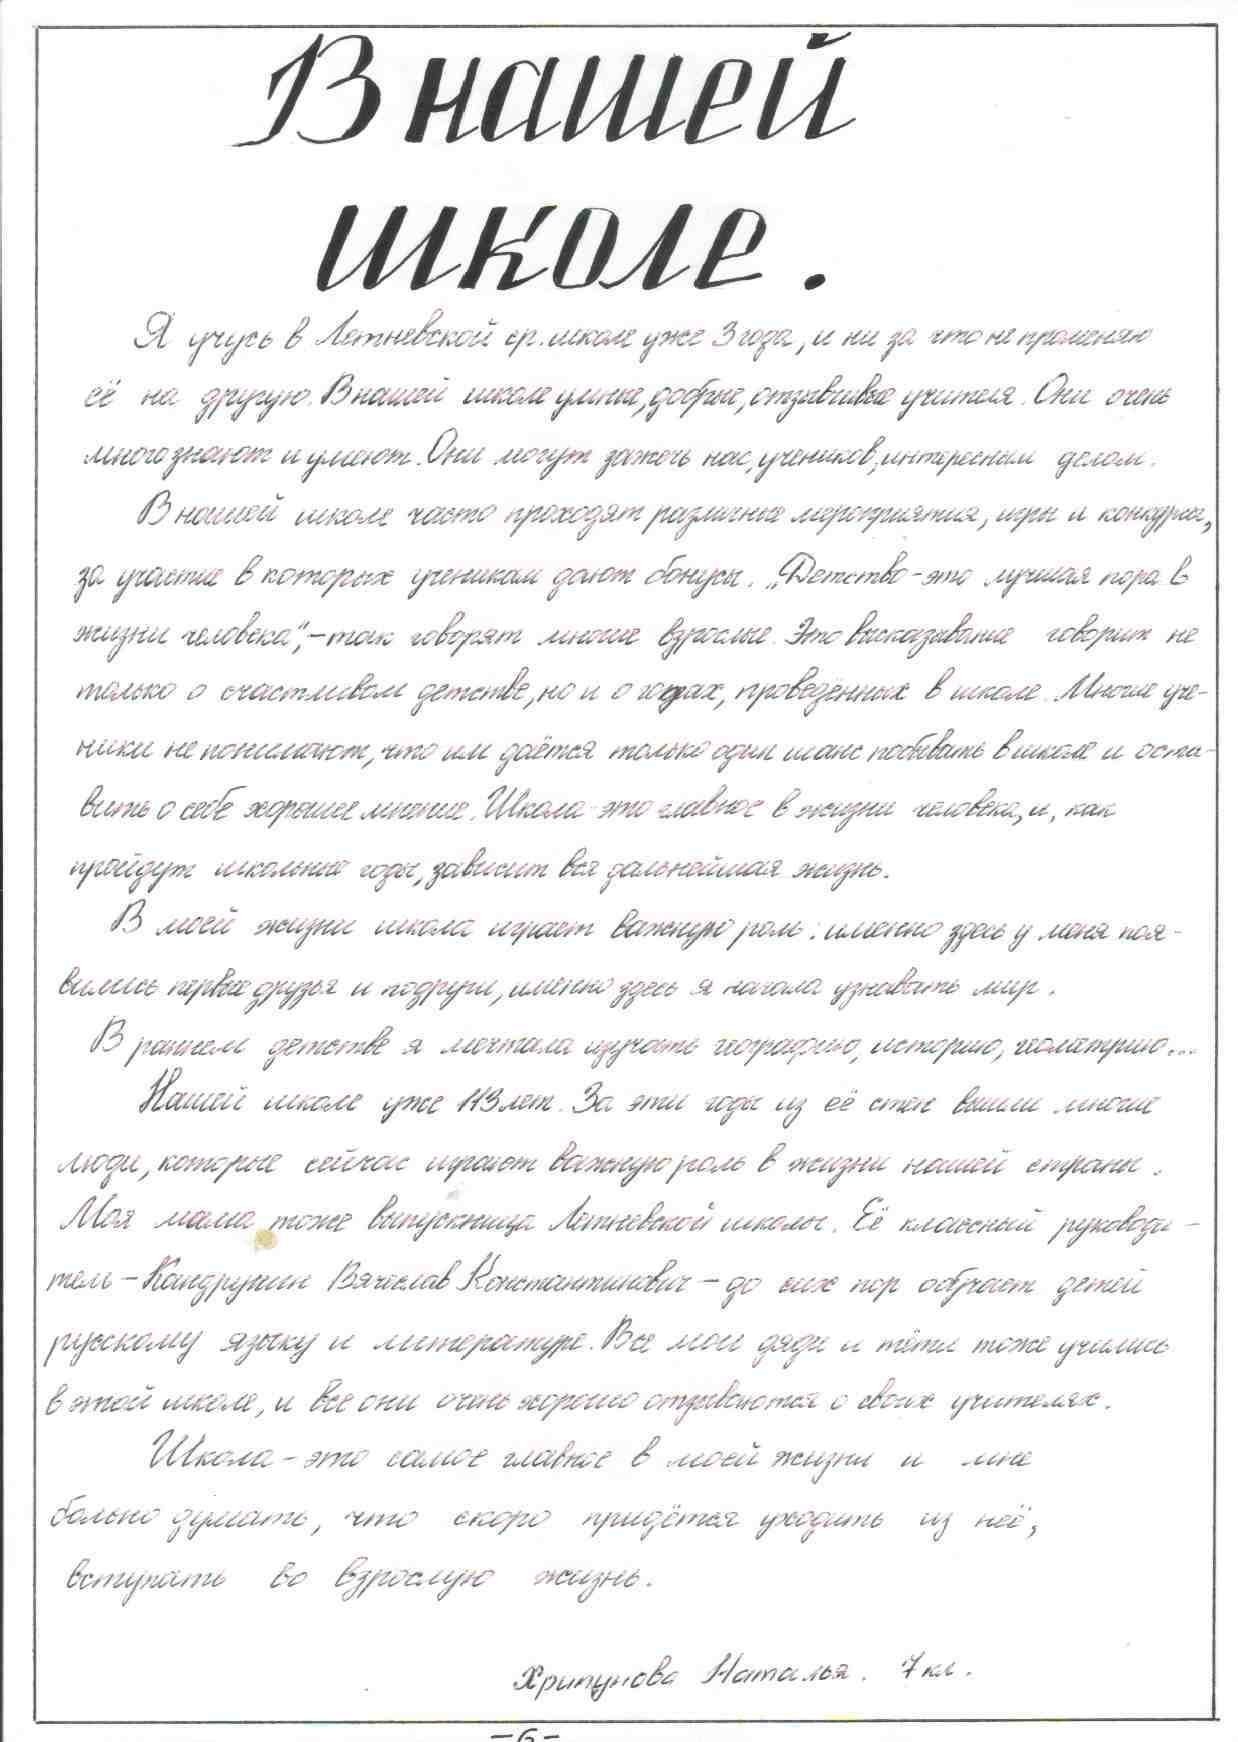 В нашей
школе.
Я учусь в Летневской ср. школе уже 3 года, и ни за что не променяю
её на другую. В нашей школе умные, добрые, отзывчивые учителя. Они очень
много знают и умеют. Они могут зажечь нас, учеников, интересным делом.
В нашей школе часто проходят различные мероприятия, игры и конкурсы,
за участие в которых ученикам дают бонусы. „Детство - это лучшая пора в
жизни человека“, - так говорят многие взрослые. Это высказывание говорит не
только о счастливом детстве, но и о годах, проведённых в школе. Многие уче-
ники не понимают, что им даётся только один шанс побывать в школе и оста-
вить о себе хорошее мнение. Школа - это главное в жизни человека, и, как
пройдут школьные годы, зависит вся дальнейшая жизнь.
В моей жизни школа играет важную роль: именно здесь у меня поя-
вились первые друзья и подруги, именно здесь я начала узнавать мир.
В раннем детстве я мечтала изучать географию, историю, геометрию...
Нашей школе уже 113 лет. За эти годы из её стен вышли многие
люди, которые сейчас играют важную роль в жизни нашей страны.
Моя мама тоже выпускница Летневской школы. Её классный руководи-
тель - Вячеслав Константинович - до сих пор обучает детей
русскому языку и литературе. Все мои дяди и тёти тоже учились
в этой школе, и все они очень хорошо отзываются о своих учителях.
Школа - это самое главное в моей жизни и мне
больно думать, что скоро придётся уходить из неё,
вступать во взрослую жизнь.
Хрипунова Наталья. 7 кл.
-6-